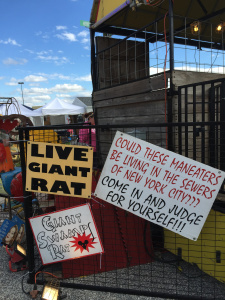 LIVE
GIANT
RAT
COULD THESE MANEATER'S
BE LIVING IN THE SEWERS
OF NEW YORK CITY????
COME IN AND JUDGE
FOR YOURSELF!!!
GIANT
SWAMP
RAT